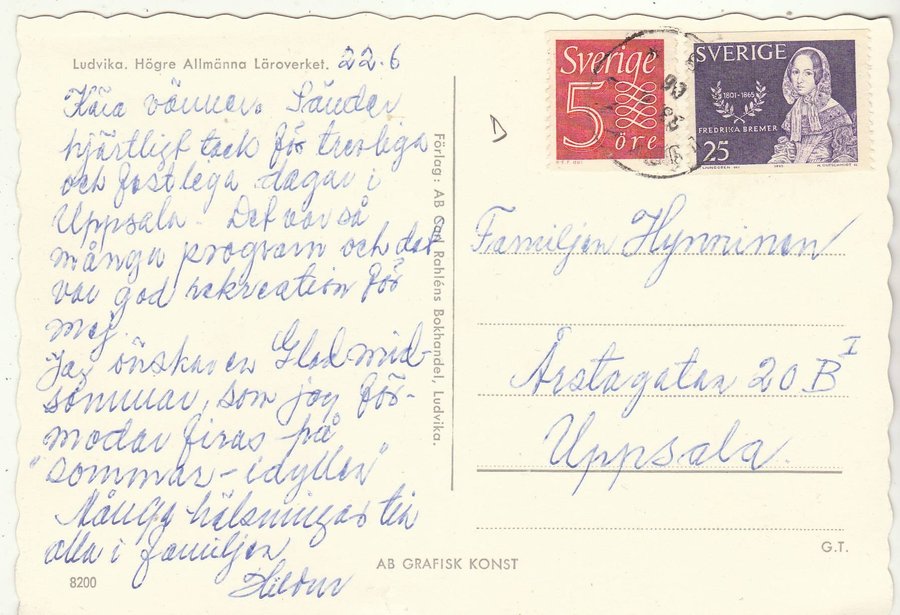 Ludvika. Högre Allmänna Läroverket. 22.6
Kära vänner. Sänder
hjärtligt tack för trevliga
och festliga dagar i
Uppsala. Det var så
många program och det
var god rekreation för
mej.
Jag önskar en Glad mid-
sommar, som jag för-
modar firas på
"sommar-idyllen"
Många hälsningar till
alla i familjen
8200
Förlag: AB Carl Rahléns Bokhandel, Ludvika.
AB GRAFISK KONST
Sverige
5
öre
SVERIGE
1801-1865
FREDRIKA BREMER
25
Familjen Hynninen
Årstagatan 20 B I
Uppsala.
G.T.